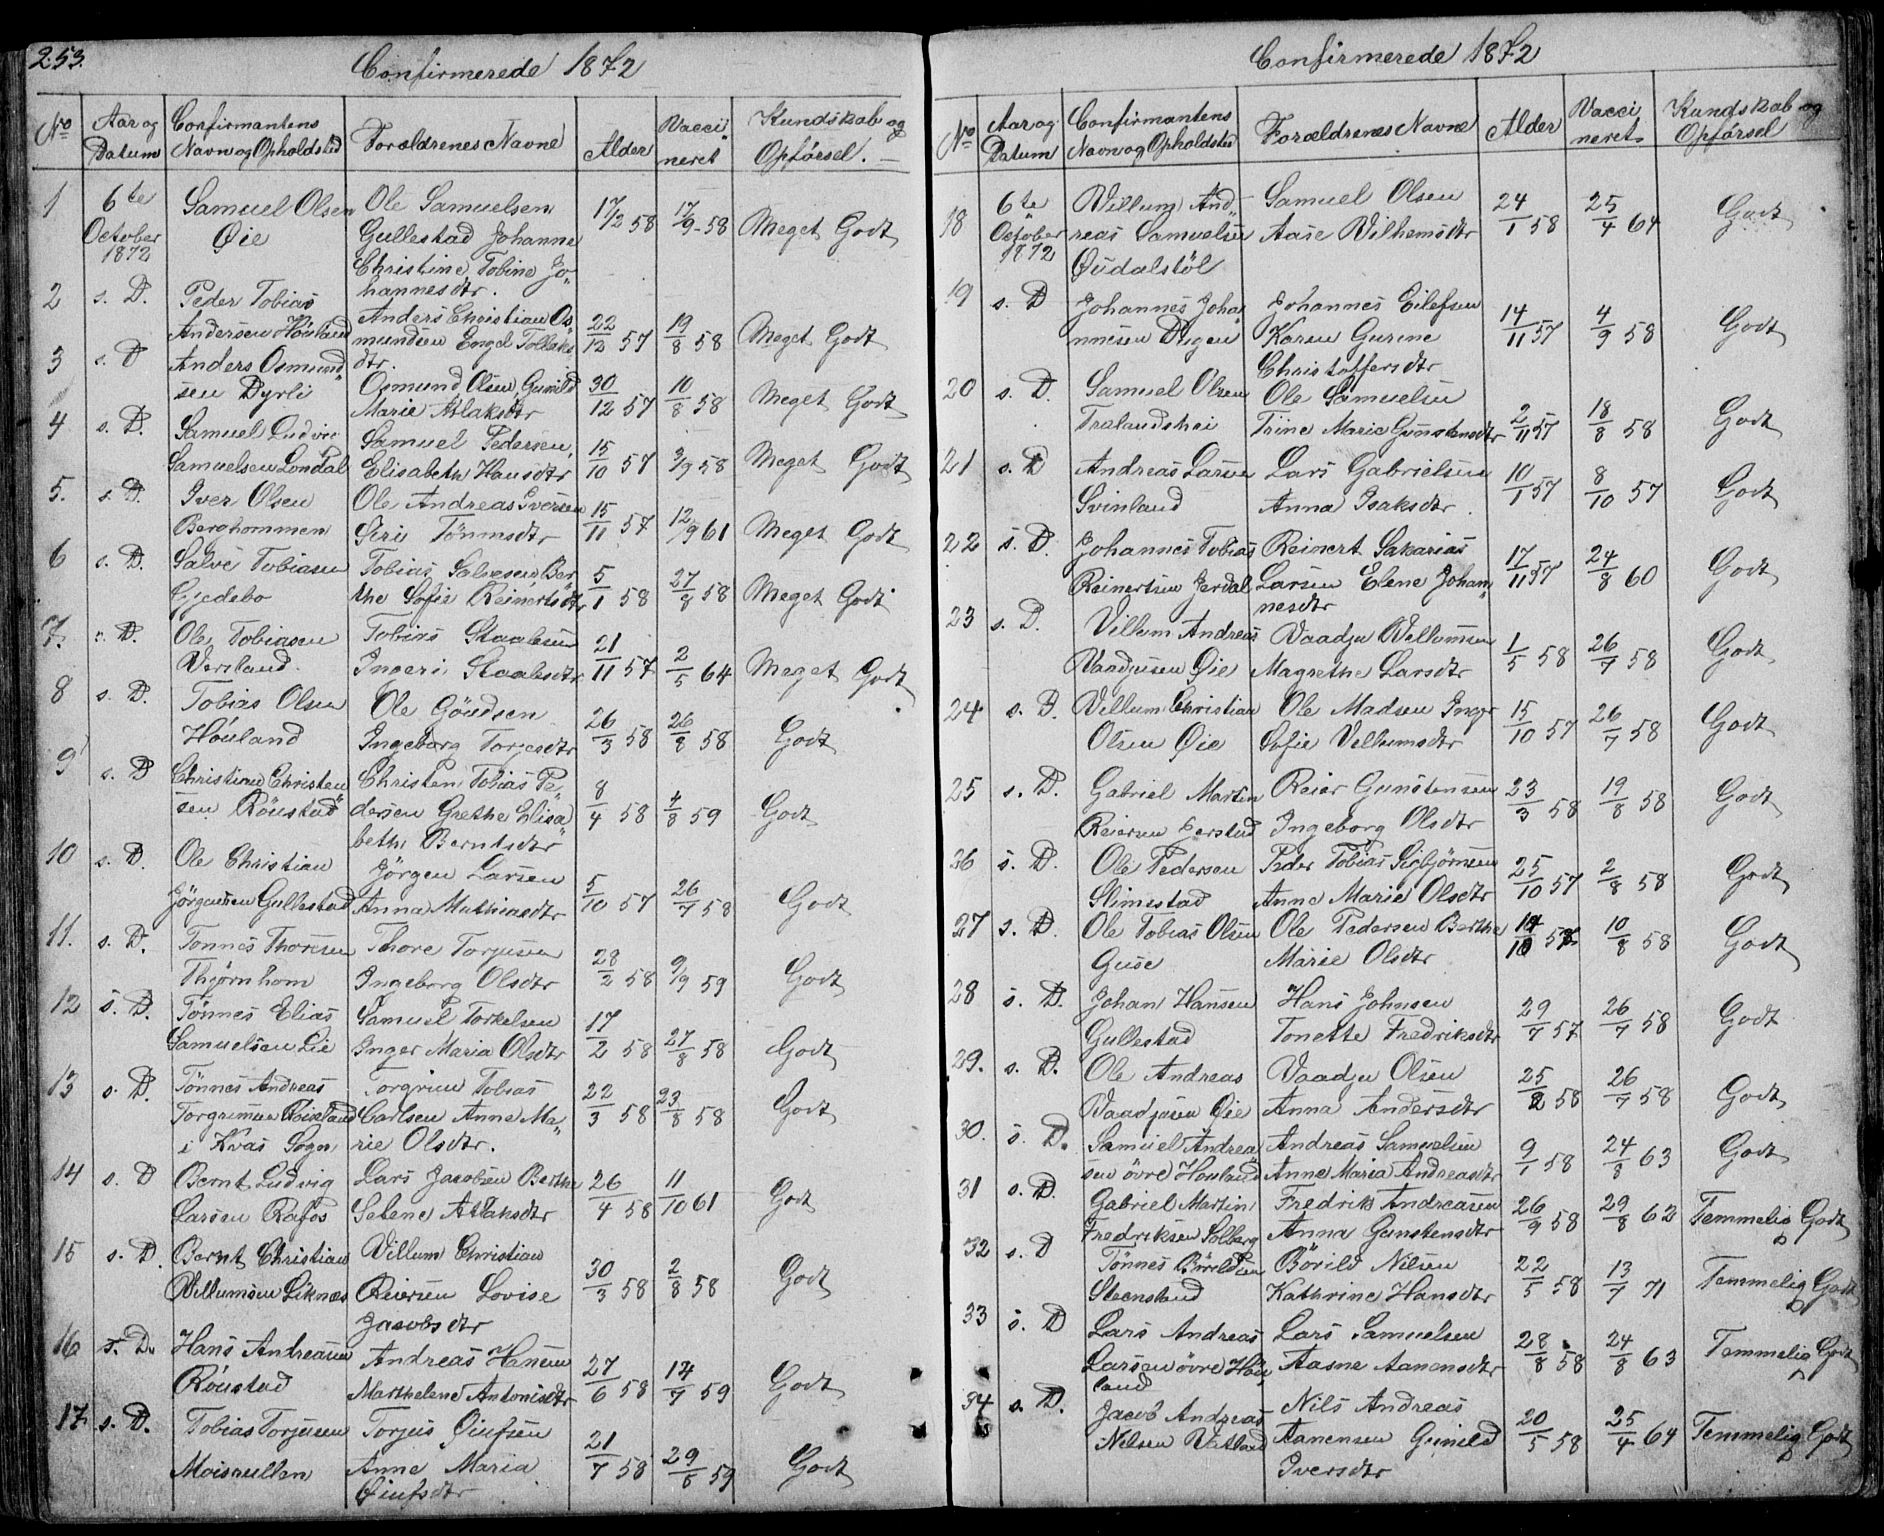 253.
Confirmerede 1872
No
Aar og
Datum
Confirmantens
Navn og Opholdsted
Forældrenes Navne
Alder
Vacci
neret
Kundskab og
Opførsel.
1
6te
October
1872
Samuel Olsen
Øie
Ole Samuelsen
Gullestad Johanne
Christine Tobine Jo-
hannesdtr.
17/2 58
17/9-58
Meget Godt
2
s. D.
Peder Tobias
Andersen Höuland
Anders Christian Os-
mundsen Engel Tollaks
dtr.
22/12 57
19/8 58
Meget Godt
3
s. D
Anders Osmund-
sen Dyrli
Osmund Olsen, Gunild
Marie Atlaksdtr
30/12 57
10/8 58
Meget Godt
4
s. D.
Samuel Ludvic
Samuelsen Londal
Samuel Pedersen,
Elisabeth Hansdtr
15/10 57
3/9 58
Meget Godt
5.
s. D.
Iver Olsen
Berghommen
Ole Andreas Iversen
Siri Tönnesdtr
15/11 57
12/9 61
Meget Godt
6
s. D.
Salve Tobiasen
Gjedebo
Tobias Salvesen, Ber-
the Sofie Reinertsdtr
5/1 58
27/8 58
Meget Godt
7.
s. D.
Ole Tobiasen
Versland.
Tobias Staalesen
Ingeri Staalesdtr
21/11 57
2/5 64
Meget Godt
8
s. D.
Tobias Olsen
Höuland
Ole Göudsen
Ingeborg Torjesdtr
26/3 58
26/8 58
Godt
9
s. D
Christian Christen
sen Röustad
Christen Tobias Pe-
dersen Grethe Elisa-
beth Berntsdtr
8/4 58
4/8 59
Godt
10
s. D.
Ole Christian
Jörgensen Gullestad
Jörgen Larsen
Anna Mathiasdtr
5/10 57
26/7 58
Godt
11.
s. D.
Tonnes Thoresen
Thjörnhom
Thore Torjusen
Ingeborg Olsdtr
28/2 58
9/9 59
Godt
12
s. D.
Tönnes Elias
Samuelsen Lie
Samuel Torkelsen
Inger Maria Olsdtr
17/2 58
27/8 58
Godt
13
s. D.
Tönnes Andreas
Torgrimsen Röisland
i Kvas Sogn
Torgrim Tobias
Carlsen Anne Ma-
rie Olsdtr.
22/3 58
23/8 58
Godt
14
s. D
Bernt Ludvig
Larsen Rafos
Lars Jacobsen Berthe
Selene Atlaksdtr
26/4 58
11/10 61
Godt
15
s. D.
Bernt Christian
Villumsen Liknæs
Villum Christian
Reiersen Lovise
Jacobsdtr
30/3 58
2/8 58
Godt
16
s. D.
Hans Andreasen
Röustad
Andreas Hansen
Marthelene Antonisdtr
27/6 58
14/7 59
Godt
17
s. D.
Tobias Torjusen
Moisrullen
Torjus Öiufsen
Anne Maria
Öiufsdtr
21/7 58
29/8 59
Godt
Confirmerede 1872
No
Aar og
Datum
Confirmantens
Navn og Opholdsted
Forældrenes Navne
Alder
Vacci
neret
Kundskab og
Opførsel
18
6te
October
1872
Willum And-
reas Samuelsen
Öudalstöl
Samuel Olsen
Aase Wilhemsdtr
24/1 58
25/4 64
Godt
19
s. D
Johannes Joha-
nnesen Dugen
Johannes Eilefsen
Karen Gurine
Christoffersdtr
14/11 57
4/9 58
Godt
20
s. D.
Samuel Olsen
Tralandshei
Ole Samuelsen
Trine Maria Gunstensdtr
2/11 57
18/8 58
Godt
21
s. D
Andreas Larsen
Svinland
Lars Gabrielsen
Anna Isaksdtr
10/1 57
8/10 57
Godt
22
s. D.
Johannes Tobias
Reinertsen Jerdal
Reinert Sakarias
Larsen Elene Johan-
nesdtr
17/11 57
24/8 60
Godt
23
s. D.
Villum Andreas
Vaadjusen Öie
Vaadju Villumsen
Magrethe Larsdtr
1/5 58
26/7 58
Godt
24
s. D.
Villum Christian
Olsen Öie
Ole Madsen Inger
Sofie Velhumsdtr
15/10 57
26/7 58
Godt
25
s. D.
Gabriel Martin
Reiersen Gerstad
Reier Gunstensen
Ingeborg Olsdtr
23/3 58
19/8 58
Godt
26
s. D.
Ole Pedersen
Slimestad
Peder Tobias Sigbjörnsen
Anne Marie Olsdtr
25/10 57
2/8 58
Godt
27
s. D.
Ole Tobias Olsen
Guse
Ole Pedersen Berthe
Marie Olsdtr
10/8 58
Godt
28
s. D.
Johan Hansen
Gullestad
Hans Johnsen
Tonette Fredriksdtr
29/7 57
26/7 58
Godt
29.
s. D.
Ole Andreas
Vaadjusen Öie
Vaadju Olsen
Anna Andersdtr
25/2 58
26/7 58
Godt
30.
s. D.
Samuel Andrea-
sen övre Houland
Andreas Samuelsen
Anne Maria Andreasdtr
9/1 58
24/8 63
Godt
31
s. D.
Gabriel Martin
Fredriksen Solberg
Fredrik Andreasen
Anna Gunstensdtr
26/9 58
29/8 62
Temmelig Godt
32
s. D
Tönnes Börildsen
Steensland
Börild Nilsen
Kathrine Hansdtr
22/5 58
13/7 71
Temmelig Godt
33
s. D
Lars Andreas
Larsen övre Höu
land
Lars Samuelsen
Aasne Aanensdtr
28/8 58
24/8 63
Temmelig Godt
34
s. D.
Jacob Andreas
Nilsen Vatland
Nils Andreas
Aanensen Gunild
Iversdtr
20/5 58
25/4 64
Temmelig Godt